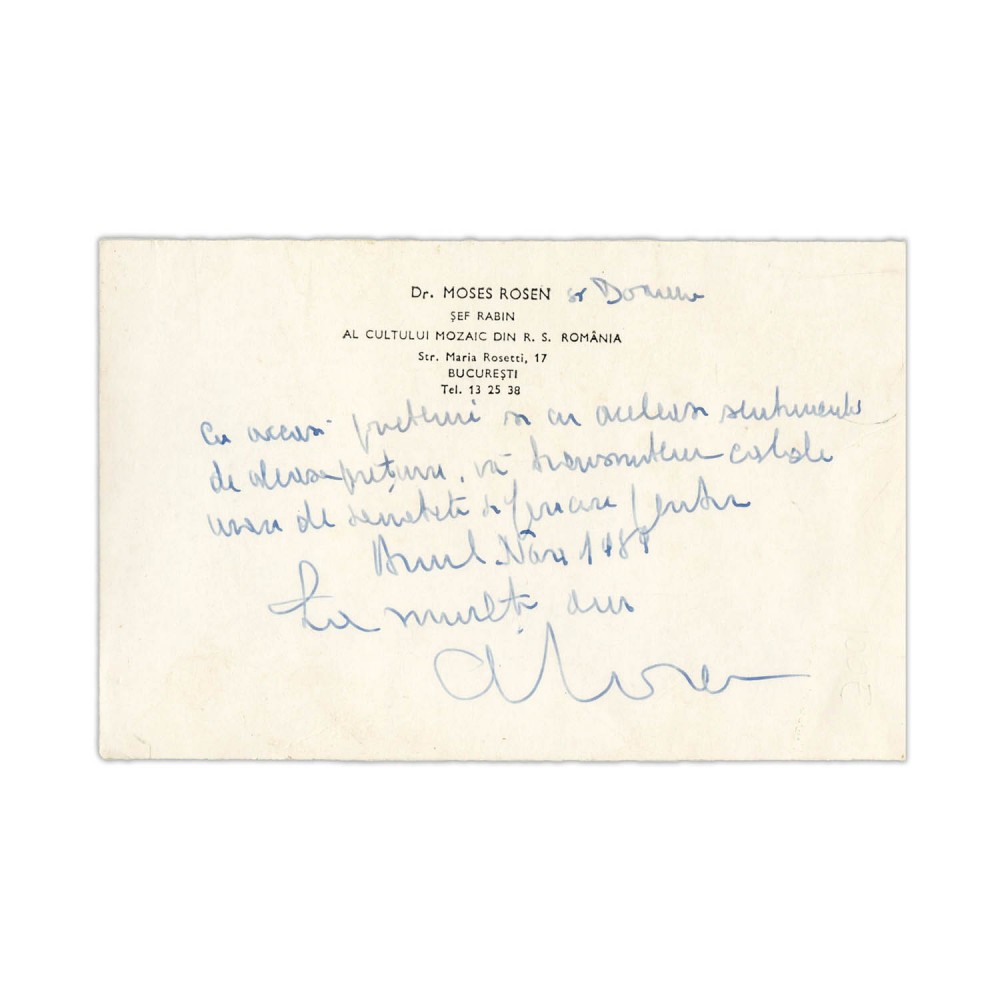 Dr. MOSES ROSEN și Doamna
ȘEF RABIN
AL CULTULUI MOZAIC DIN R. S. ROMÂNIA
Str. Maria Rosetti, 17
BUCUREȘTI
Tel. 13 25 38
Cu aceeași prietenie și cu aceleași sentimente
de aleasă prețuire, vă transmitem calde
urări de sănătate și fericire pentru
Anul Nou
La mulți ani